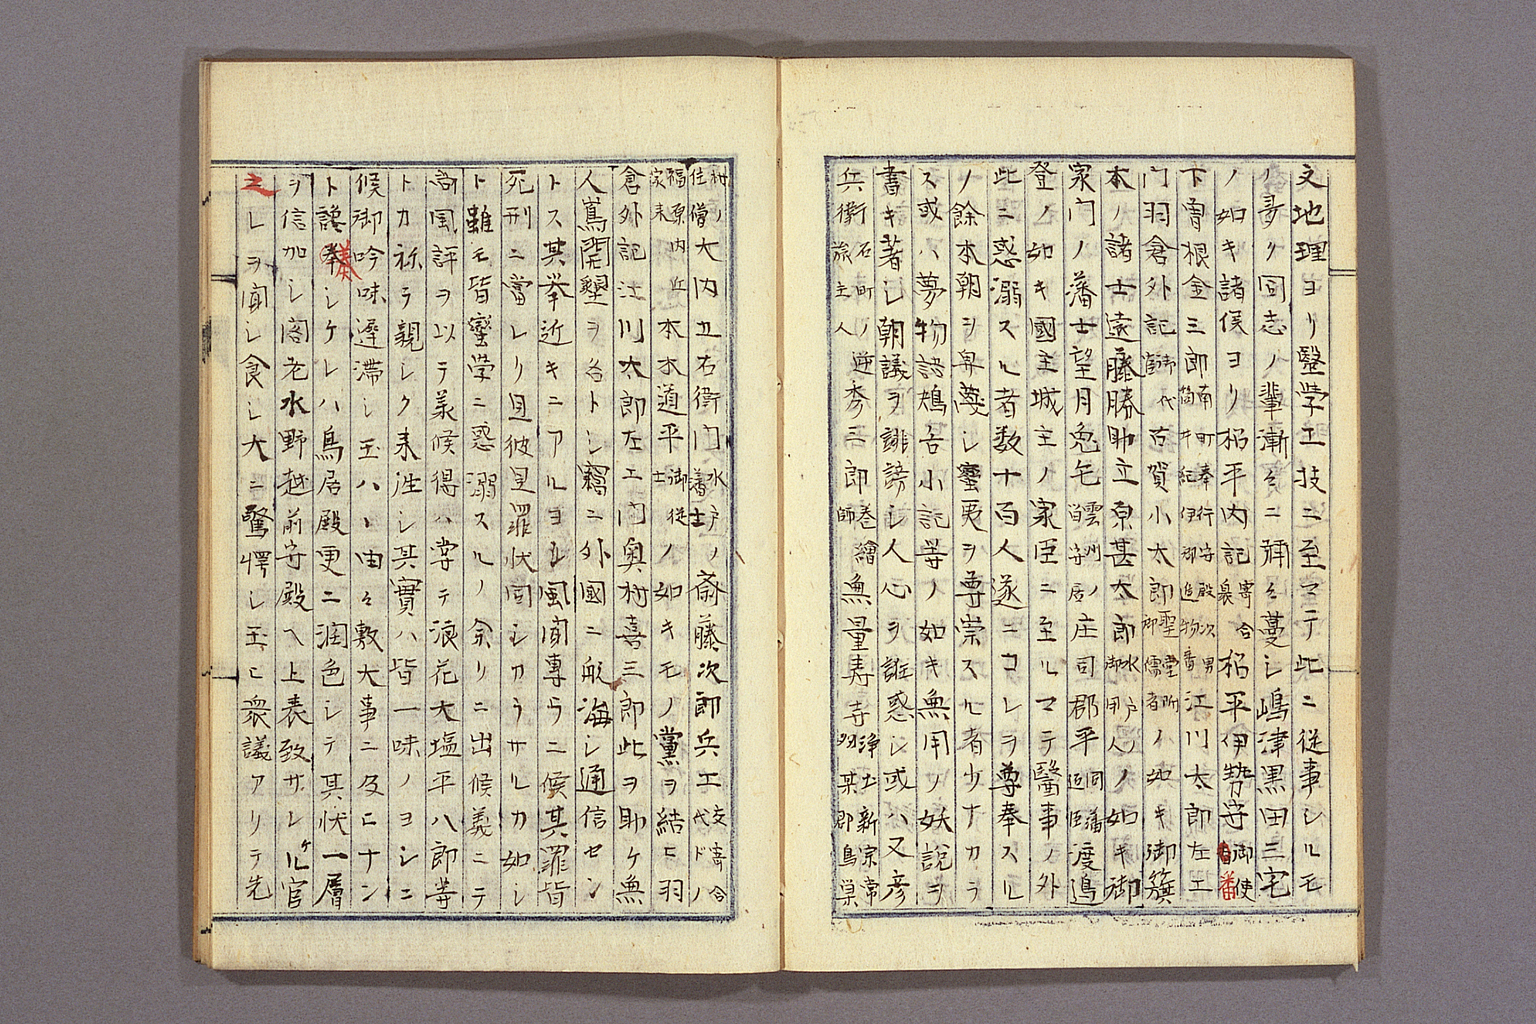 文地理ヨリ醫学工技ニ至マテ此ニ従事シルモ
ノ多ク同志ノ輩漸々ニ彌々蔓シ嶋津黒田三宅
ノ如キ諸侯ヨリ松平内記寄合松平伊勢守御使番
下曽根金三郎南町奉行守殿次男筒井紀伊江川太郎左エ
門羽倉外記御代官古賀小太郎聖堂御儒者ノ如キ御簱
本ノ諸士遠藤勝助立原甚太郎水戸御用人ノ如キ御
家門ノ藩士望月兔毛雲州ノ留守居庄司郡平同藩渡邉
登ノ如キ國主城主ノ家臣ニ至ルマテ醫事ノ外
此ニ惑溺スル者数十百人遂ニコレヲ尊奉スル
ノ餘本朝ヲ卑蔑シ蠻夷ヲ尊崇スル者少ナカラ
ス或ハ夢物語鴂舌小記等ノ如キ無用ノ妖説ヲ
書キ著シ朝議ヲ誹謗シ人心ヲ誑惑シ或ハ又彦
兵衛石町ノ旅主人秀三郎繪巻師無量寿寺浄土新宗常州某郡鳥巣
村ノ住僧大内五右衛門水戸藩士ノ斎藤次郎兵エ
福原内匠家来本木道平御徒士ノ如キモノ黨ヲ結ヒ羽
倉外記江川太郎左エ門奥村喜三郎此ヲ助ケ無
人嶌開墾ヲ名トシ竊ニ外國ニ航海シ通信セン
トス其挙近キニアルヨシ風聞專ラニ候其罪皆
死刑ニ當レリ且彼是罪状同シカラサルカ如シ
ト雖モ皆蠻学ニ惑溺スルノ余リニ出候義ニテ
尚風評ヲ以テ美候得ハ嘗テ浪花大塩平八郎等
トカ祢テ親シク来往シ其實ハ皆一味ノヨシニ
候御吟味遅滞シ玉ハヽ由々敷大事ニ及ヒナン
ト讒奏シケレハ鳥居殿更ニ潤色シテ其状一層
ヲ信加シ閣老水野越前守殿ヘ上表致サレケル官
之レヲ聞シ食シ大ニ驚愕シ玉ヒ衆議アリテ先